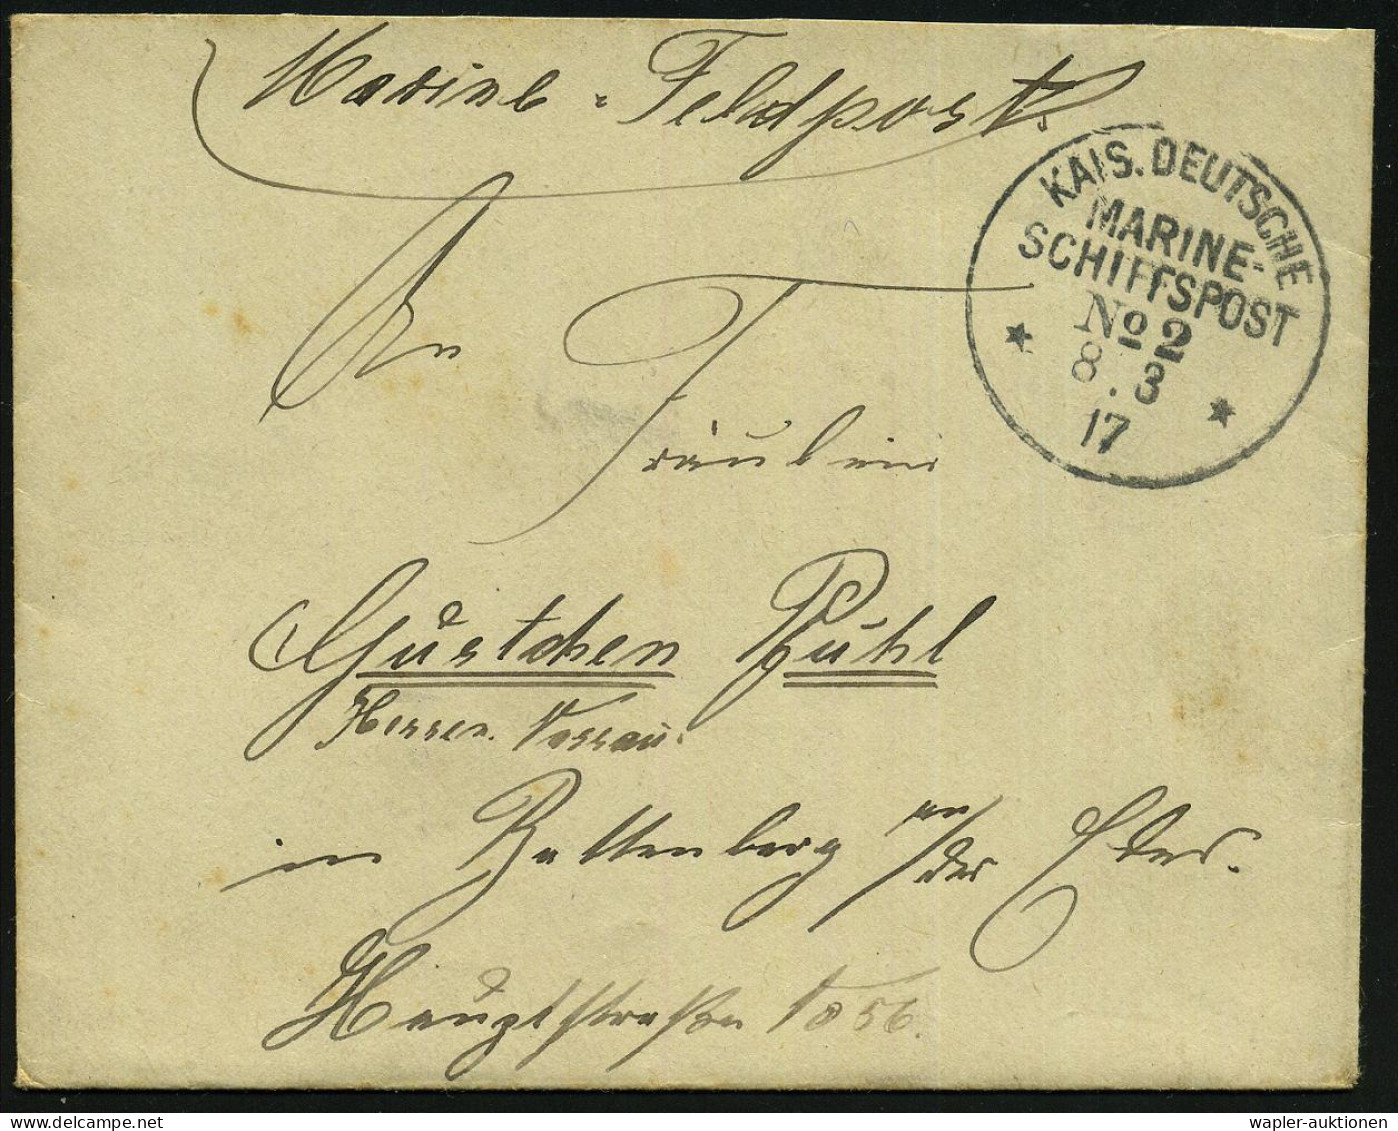 Marine-Feldpost.
KAIS. DEUTSCHE
MARINE-
SCHIFFSPOST
No 2
8.3
17
An
Fräulein
Gustchen Puhl
Hessen Nassau.
in Battenberg an/der Eder.
Hauptstraße No 56.
wapler-auktionen.com